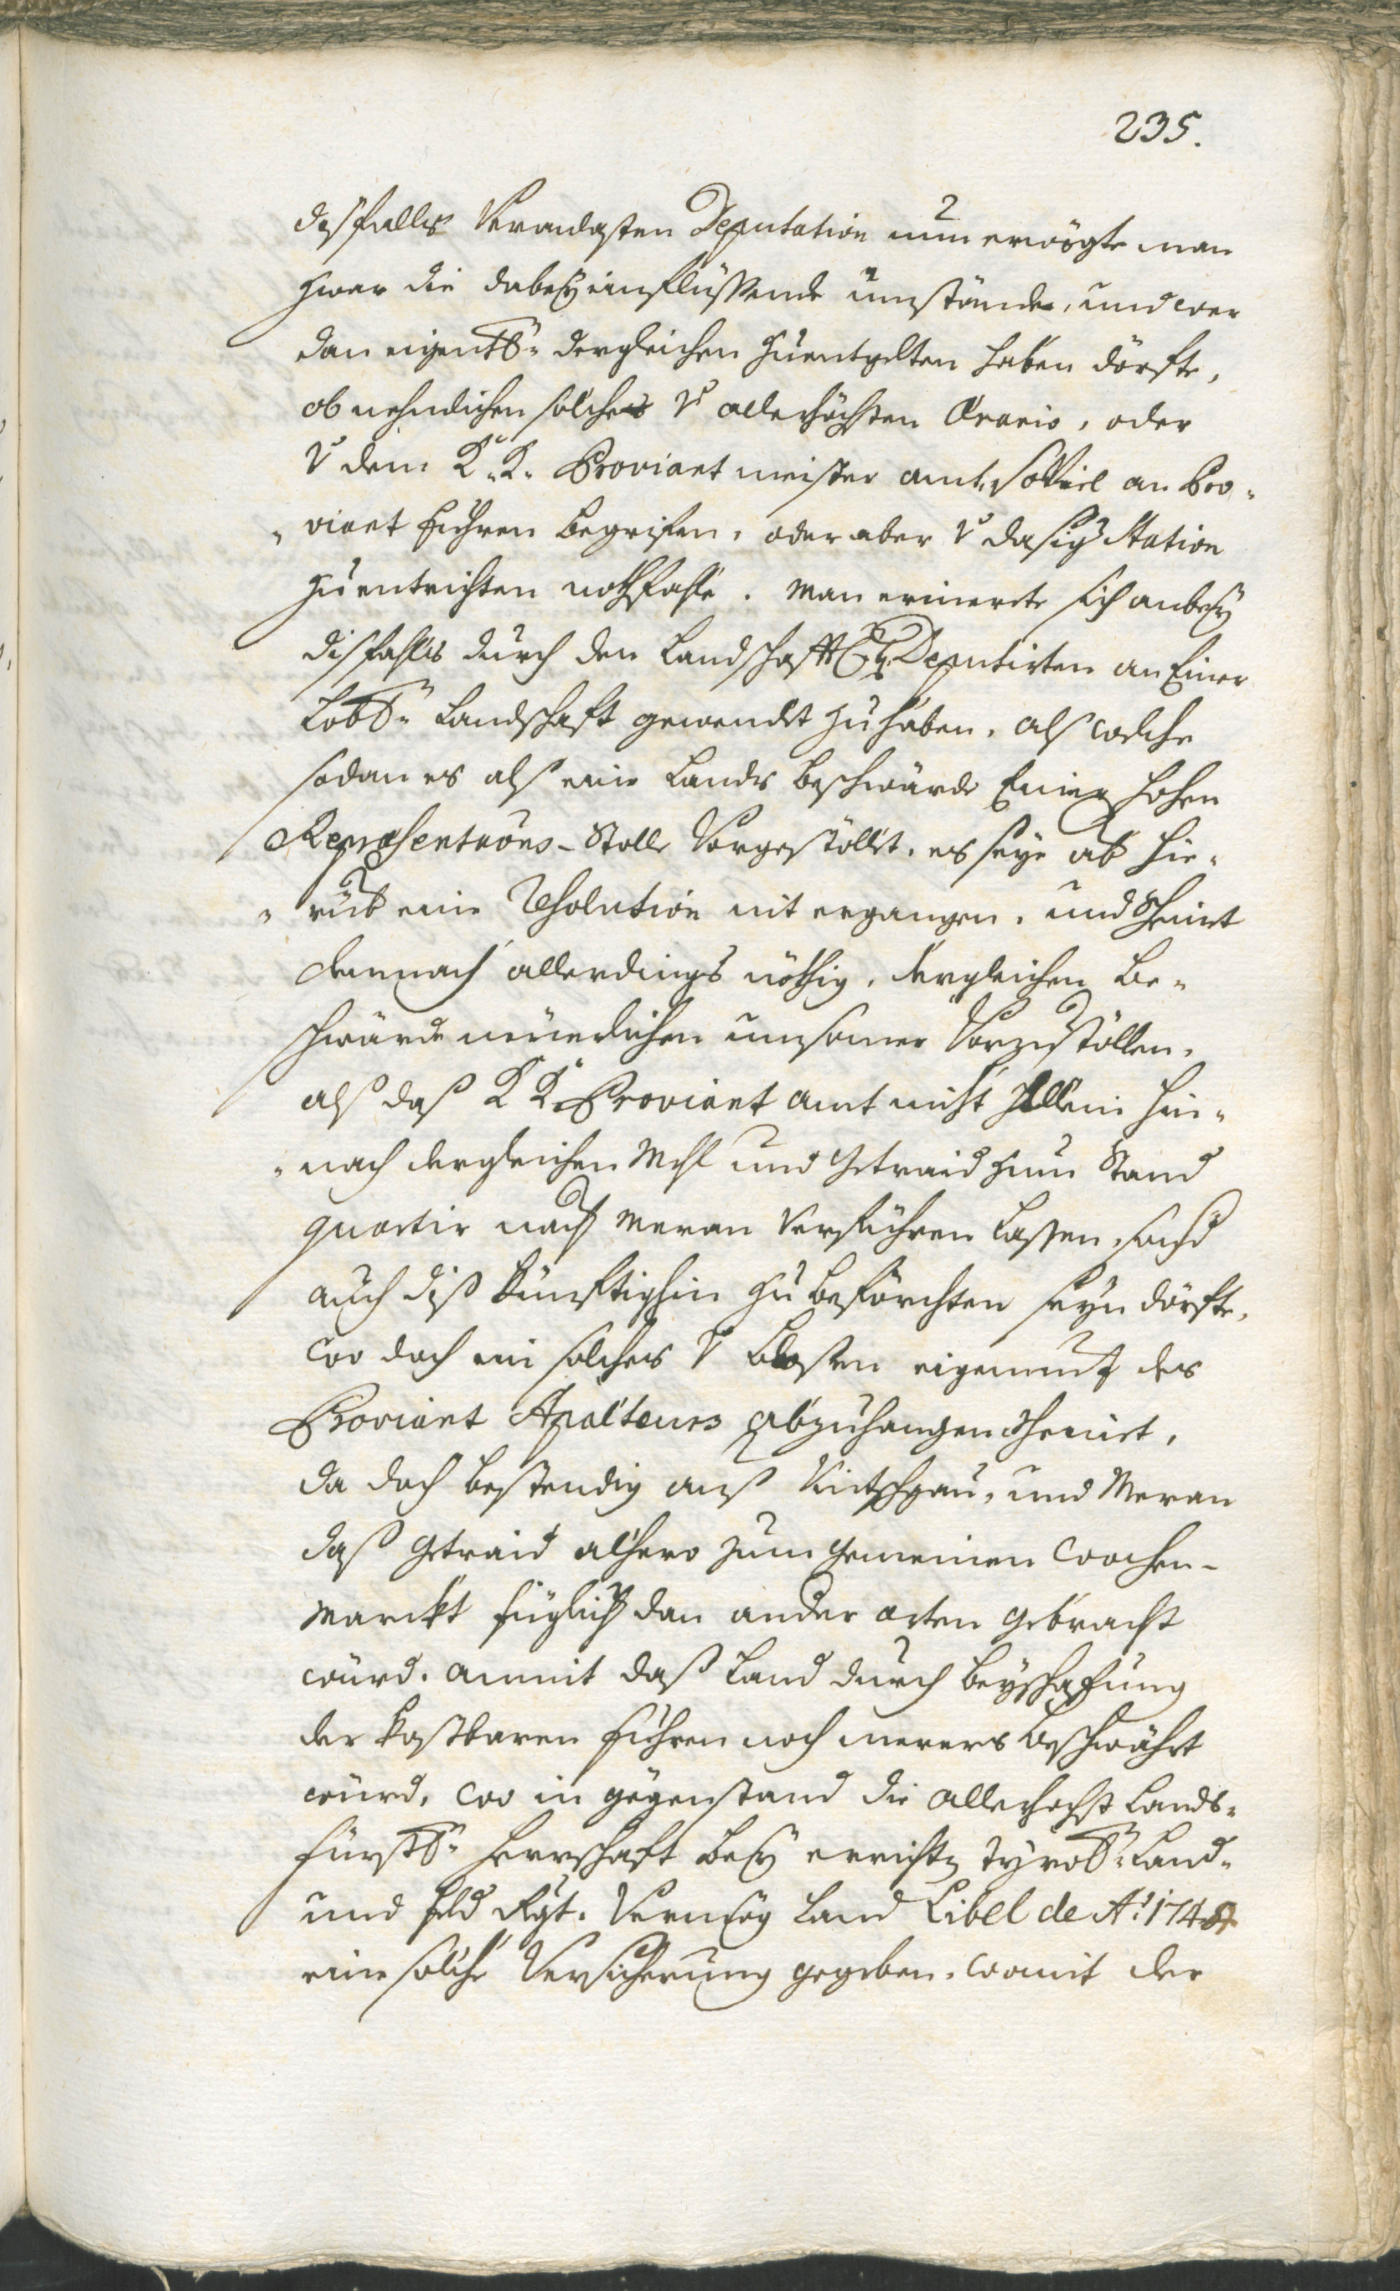 235.
desfalls Veranlasten Deputation nun erwögte man
zwar die dabey einflüssende umstände, und wer
dan eigentl: dergleichen zuentgelten haben dörfte,
ob nehmlichen solches v allerhöchsten Ærario, oder
v dem K: K: Proviantmeister amt, sovil an Pro-
-viant fuhren begrifen, oder aber v dasig Station
zuentrichten nothfahle. Man erinerte sich anbey
disfahls durch den Landschafft Deputirten an Einer
Löbl: Landschaft gewendt zuhaben, als welche
sodan es als eine Lands beschwärde Einer hohen
Repræsentaõns-Stölle Vorgestöllet, es seye ab hie-
-rüb eine Resolution nit ergangen, und scheint
demnach allerdings nöthig, dergleichen be-
schwärde neüerlichen umsomer Vorzustöllen,
als das K K: Proviant amt nicht allein hin-
-nach dergleichen Mehl und Getraid zum Stand
quartir nach Meran Verführen lassen, sond
auch diß künftighin zu beförchten seyn dörfte,
wo doch ein solches v blosen eigennutz des
Proviant Apalteurs abzuhangen scheinet,
da doch bestendig aus Vintschgau, und Meran
das Getraid alhero zum gemeinen Wochen-
Marckt füglich dan ander orten gebracht
wurd, anmit das Land durch beyschafung
der kostbaren fuhren noch merers beschwährt
wurd, wo in gegenstand die allerhöchst Lands-
fürstl: herrschaft bey errichtg Tyrol: Land-
und feld Rgt. Vermög Land Libel de Aõ: 174
eine solche Versicherung gegeben, womit der